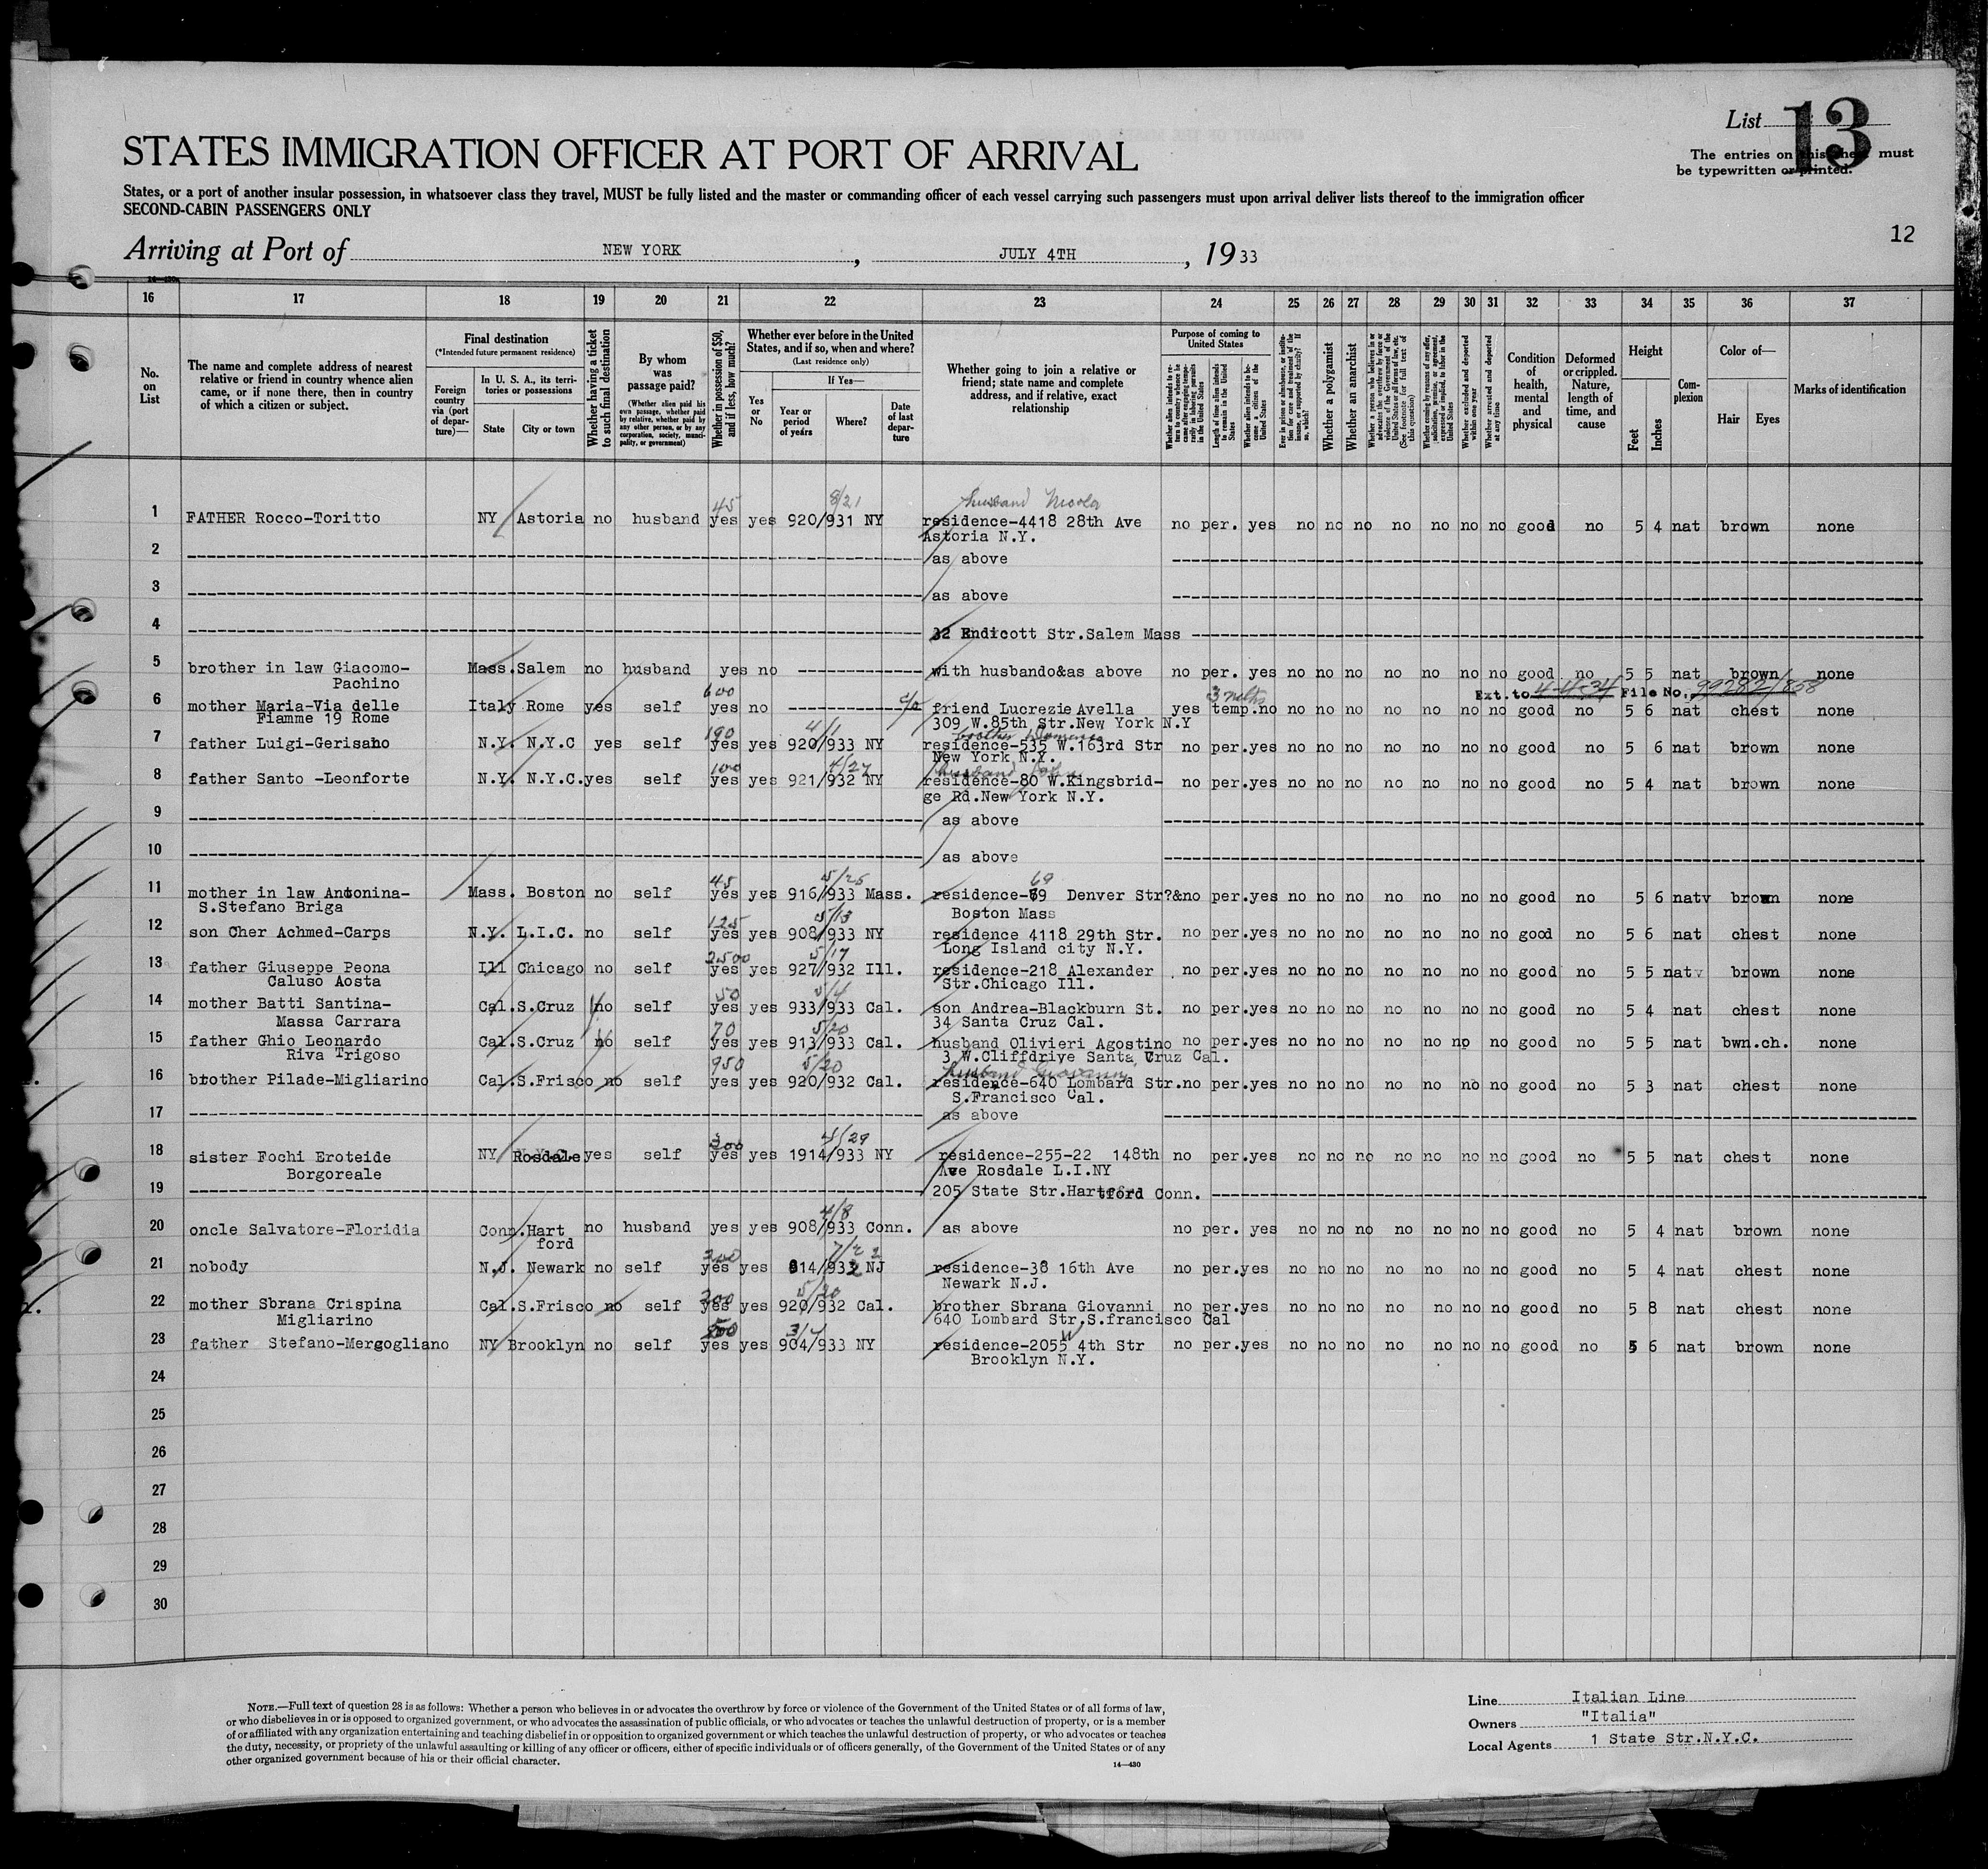 List 13
The entries on this sheet must
be typewritten or printed.
STATES IMMIGRATION OFFICER AT PORT OF ARRIVAL
States, or a port of another insular possession, in whatsoever class they travel, MUST be fully listed and the master or commanding officer of each vessel carrying such passengers must upon arrival deliver lists thereof to the immigration officer
SECOND-CABIN PASSENGERS ONLY
12
Arriving at Port of NEW YORK , JULY 4TH , 19 33
16 17 18 19 20 21 22 23 24 25 26 27 28 29 30 31 32 33 34 35 36 37
No. on List
The name and complete address of nearest relative or friend in country whence alien came, or if none there, then in country of which a citizen or subject.
Final destination
(*Intended future permanent residence)
Foreign country via (port of departure)—
In U. S. A., its territories or possessions
State
City or town
Whether having a ticket to such final destination
By whom was passage paid?
(Whether alien paid his own passage, whether paid by relative, whether paid by any other person, or by any corporation, society, municipality, or government)
Whether in possession of $50, and if less, how much?
Whether ever before in the United States, and if so, when and where?
(Last residence only)
Yes or No
If Yes—
Year or period of years
Where?
Date of last departure
Whether going to join a relative or friend; state name and complete address, and if relative, exact relationship
Purpose of coming to United States
Whether alien intends to return to country whence he came after engaging temporarily in laboring pursuits in the United States
Length of time alien intends to remain in the United States
Whether alien intends to become a citizen of the United States
Ever in prison or almshouse, or institution for care and treatment of the insane, or supported by charity? If so, which?
Whether a polygamist
Whether an anarchist
Whether a person who believes in or advocates the overthrow by force or violence of the Government of the United States or all forms of law, etc. (See footnote for full text of this question)
Whether coming by reason of any offer, solicitation, promise, or agreement, expressed or implied, to labor in the United States
Whether excluded and deported within one year
Whether arrested and deported at any time
Condition of health, mental and physical
Deformed or crippled. Nature, length of time, and cause
Height
Feet
Inches
Complexion
Color of—
Hair
Eyes
Marks of identification
45 8/21 husband Nicola
1 FATHER Rocco-Toritto NY Astoria no husband yes yes 920/931 NY residence-4418 28th Ave no per. yes no no no no no no no good no 5 4 nat brown none
Astoria N.Y.
2 as above
3 as above
4 32 Endicott Str.Salem Mass
5 brother in law Giacomo- Mass.Salem no husband yes no with husbando&as above no per. yes no no no no no no no good no 5 5 nat brown none
Pachino
600 3 mths Ext. to 4-4-34 File No. 99282/858
6 mother Maria-Via delle Italy Rome yes self yes no c/o friend Lucrezie Avella yes temp.no no no no no no no no good no 5 6 nat chest none
Fiamme 19 Rome 309 W.85th Str.New York N.Y
190 4/1 brother Domenico
7 father Luigi-Gerisano N.Y. N.Y.C yes self yes yes 920/933 NY residence-535 W.163rd Str no per.yes no no no no no no no good no 5 6 nat brown none
New York N.Y.
100 4/27 husband
8 father Santo -Leonforte N.Y. N.Y.C.yes self yes yes 921/932 NY residence-80 W.Kingsbrid- no per.yes no no no no no no no good no 5 4 nat brown none
ge Rd.New York N.Y.
9 as above
10 as above
45 5/25 69
11 mother in law Antonina- Mass. Boston no self yes yes 916/933 Mass. residence-69 Denver Str?&no per.yes no no no no no no no good no 5 6 natv brown none
S.Stefano Briga Boston Mass
125 5/13
12 son Cher Achmed-Carps N.Y. L.I.C. no self yes yes 908/933 NY residence 4118 29th Str. no per.yes no no no no no no no good no 5 6 nat chest none
Long Island city N.Y.
2500 5/17
13 father Giuseppe Peona Ill Chicago no self yes yes 927/932 Ill. residence-218 Alexander no per.yes no no no no no no no good no 5 5 natv brown none
Caluso Aosta Str.Chicago Ill.
50 5/4
14 mother Batti Santina- Cal.S.Cruz no self yes yes 933/933 Cal. son Andrea-Blackburn St. no per.yes no no no no no no no good no 5 4 nat chest none
Massa Carrara 34 Santa Cruz Cal.
70 5/20
15 father Ghio Leonardo Cal.S.Cruz no self yes yes 913/933 Cal. husband Olivieri Agostino no per.yes no no no no no no no good no 5 5 nat bwn.ch. none
Riva Trigoso 3 W.Cliffdrive Santa Cruz Cal.
950 5/20 husband Giovanni
16 brother Pilade-Migliarino Cal.S.Frisco no self yes yes 920/932 Cal. residence-640 Lombard Str.no per.yes no no no no no no no good no 5 3 nat chest none
S.Francisco Cal.
17 as above
300 4/29
18 sister Fochi Eroteide NY Rosdale yes self yes yes 1914/933 NY residence-255-22 148th no per.yes no no no no no no no good no 5 5 nat chest none
Borgoreale Ave Rosdale L.I.NY
19 205 State Str.Hartford Conn.
4/8
20 oncle Salvatore-Floridia Conn.Hart no husband yes yes 908/933 Conn. as above no per. yes no no no no no no no good no 5 4 nat brown none
ford
300
21 nobody N.J. Newark no self yes yes 914/932 NJ residence-38 16th Ave no per.yes no no no no no no no good no 5 4 nat chest none
Newark N.J.
200 5/20
22 mother Sbrana Crispina Cal.S.Frisco no self yes yes 920/932 Cal. brother Sbrana Giovanni no per.yes no no no no no no no good no 5 8 nat chest none
Migliarino 640 Lombard Str.S.francisco Cal
3/4 W
23 father Stefano-Mergogliano NY Brooklyn no self yes yes 904/933 NY residence-2055 4th Str no per.yes no no no no no no no good no 5 6 nat brown none
Brooklyn N.Y.
24
25
26
27
28
29
30
NOTE.—Full text of question 28 is as follows: Whether a person who believes in or advocates the overthrow by force or violence of the Government of the United States or of all forms of law,
or who disbelieves in or is opposed to organized government, or who advocates the assassination of public officials, or who advocates or teaches the unlawful destruction of property, or is a member
of or affiliated with any organization entertaining and teaching disbelief in or opposition to organized government or which teaches the unlawful destruction of property, or who advocates or teaches
the duty, necessity, or propriety of the unlawful assaulting or killing of any officer or officers, either of specific individuals or of officers generally, of the Government of the United States or of any
other organized government because of his or their official character.
14—430
Line Italian Line
Owners "Italia"
Local Agents 1 State Str.N.Y.C.